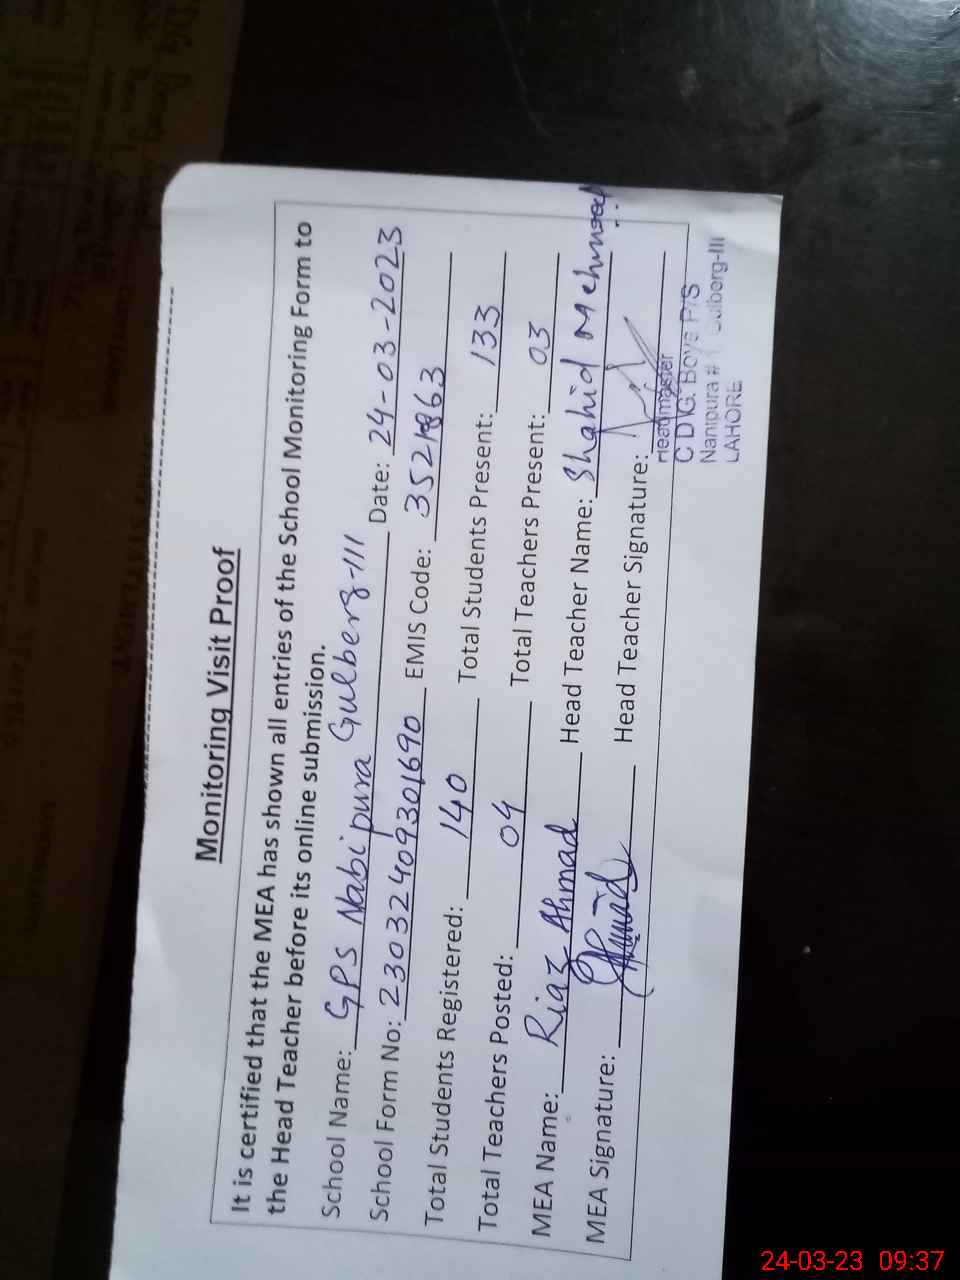 Monitoring Visit Proof
It is certified that the MEA has shown all entries of the School Monitoring Form to
the Head Teacher before its online submission.
School Name: GPS Nabipura Gulberg-III Date: 24-03-2023
School Form No: 23032409301690 EMIS Code: 35211863
Total Students Registered: 140 Total Students Present: 133
Total Teachers Posted: 04 Total Teachers Present: 03
MEA Name: Riaz Ahmad Head Teacher Name: Shahid Mehmood
MEA Signature: Head Teacher Signature:
Headmaster
C D G. Boys P/S
Nanipura # Gulberg-III
LAHORE
24-03-23 09:37